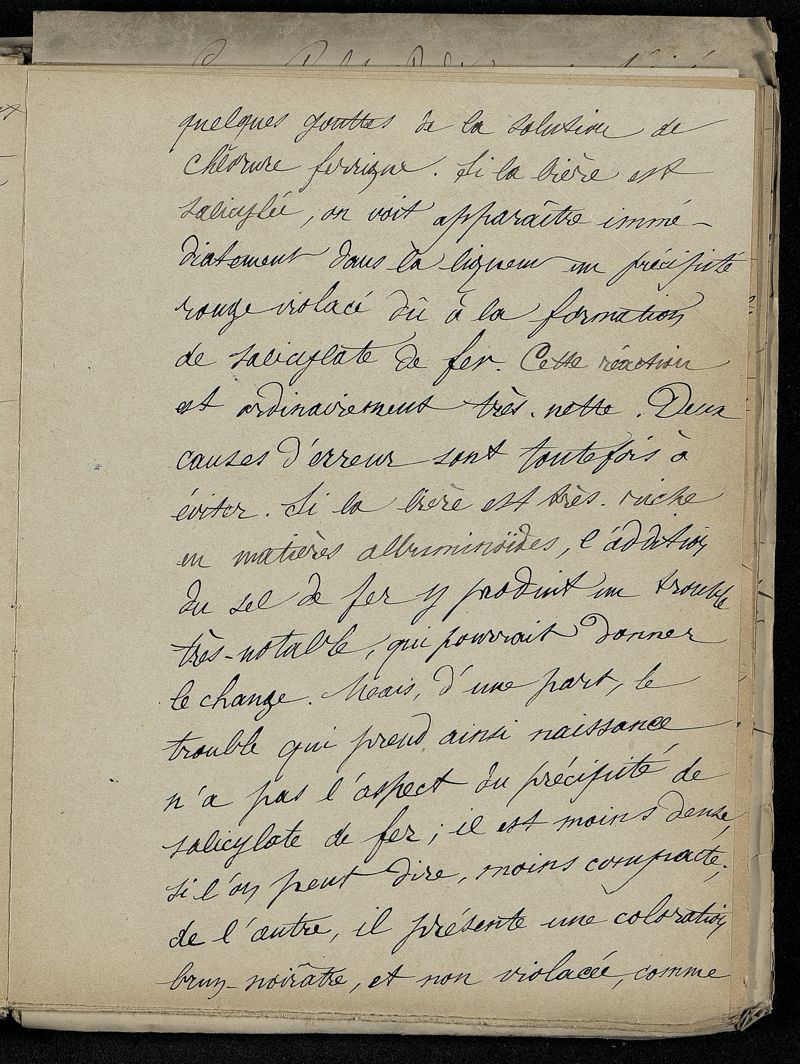 quelques gouttes de la solution de
chlorure ferrique. Si la bière est
salicylée, on voit apparaître immé-
diatement dans la liqueur un précipité
rouge violacé dû à la formation
de salicylate de fer. Cette réaction
est ordinairement très-nette. Deux
causes d'erreur sont toutefois à
éviter. Si la bière est très-riche
en matières albuminoïdes, l'addition
du sel de fer y produit un trouble
très-notable, qui pourrait donner
le change. Mais, d'une part, le
trouble qui prend ainsi naissance
n'a pas l'aspect du précipité de
salicylate de fer; il est moins dense,
si l'on peut dire, moins compacte;
de l'autre, il présente une coloration
brun-noirâtre, et non violacée, comme